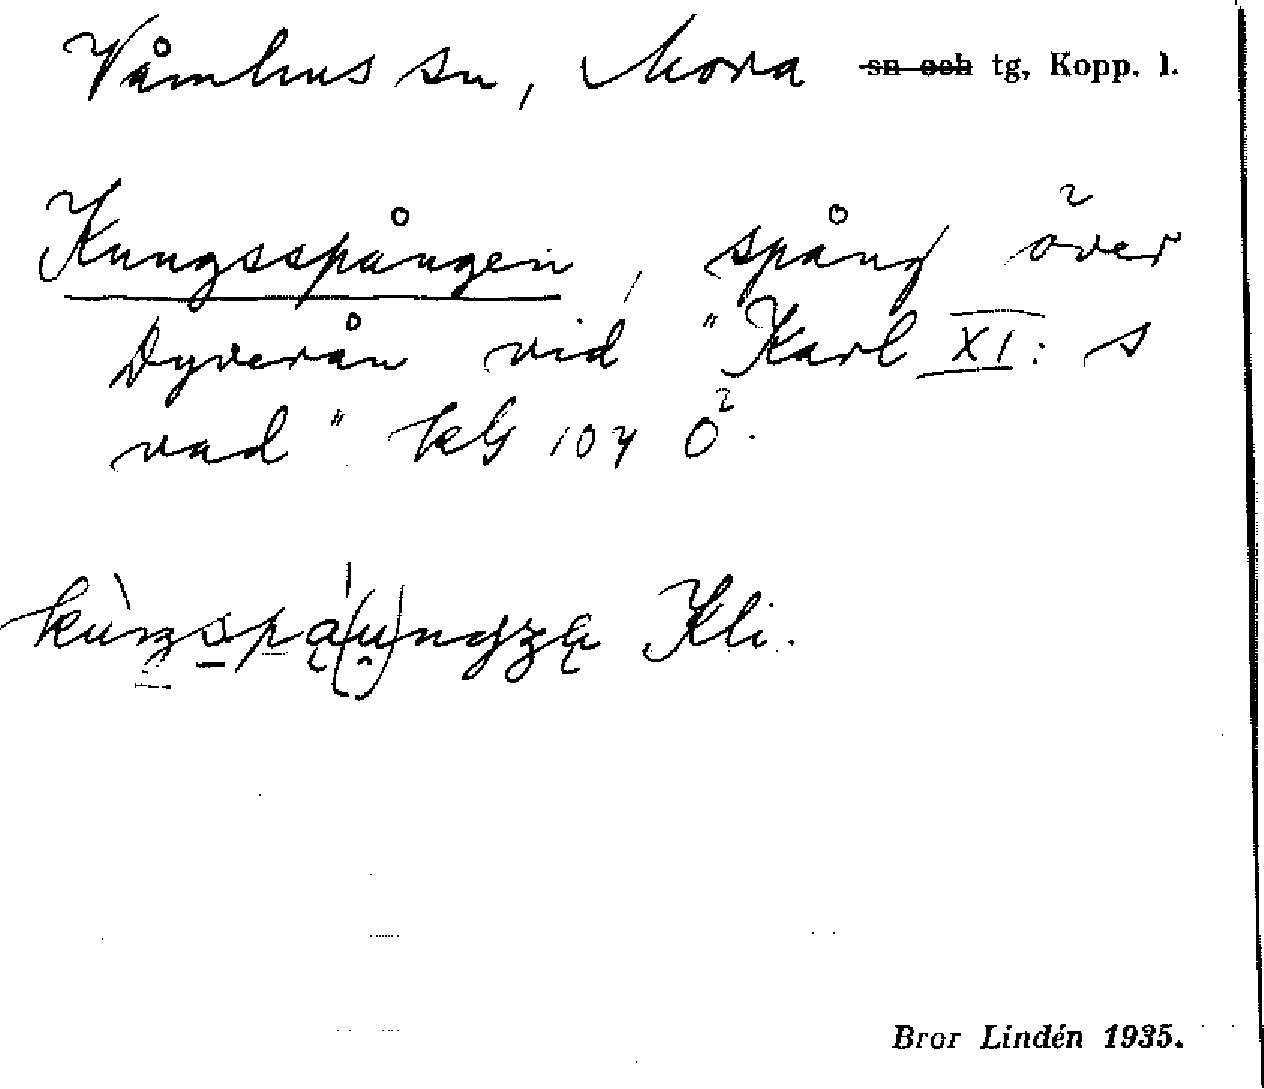 Våmhus sn, Mora sn och tg, Kopp. l.
Kungsspången, spång över
Dyverån vid "Karl XI:s
vad" kG 104 Ö.
Kli.
Bror Lindén 1935.